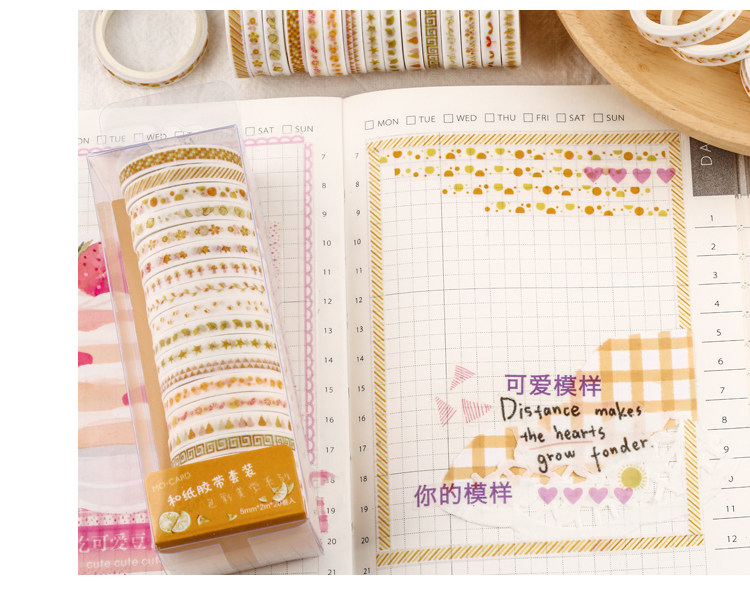 TUE WED SAT SUN
MON TUE WED THU FRI SAT SUN
7
8
9
10
11
12
13
14
15
16
17
18
19
20
21
7
8
9
10
11
12
13
14
15
16
17
18
19
20
21
DA
1
2
3
4
5
6
7
8
9
10
11
12
可爱模样
Distance makes
the hearts
grow fonder.
你的模样
MO·CARD
和纸胶带套装
5mm*2m*20卷入
可爱
cute cute cute